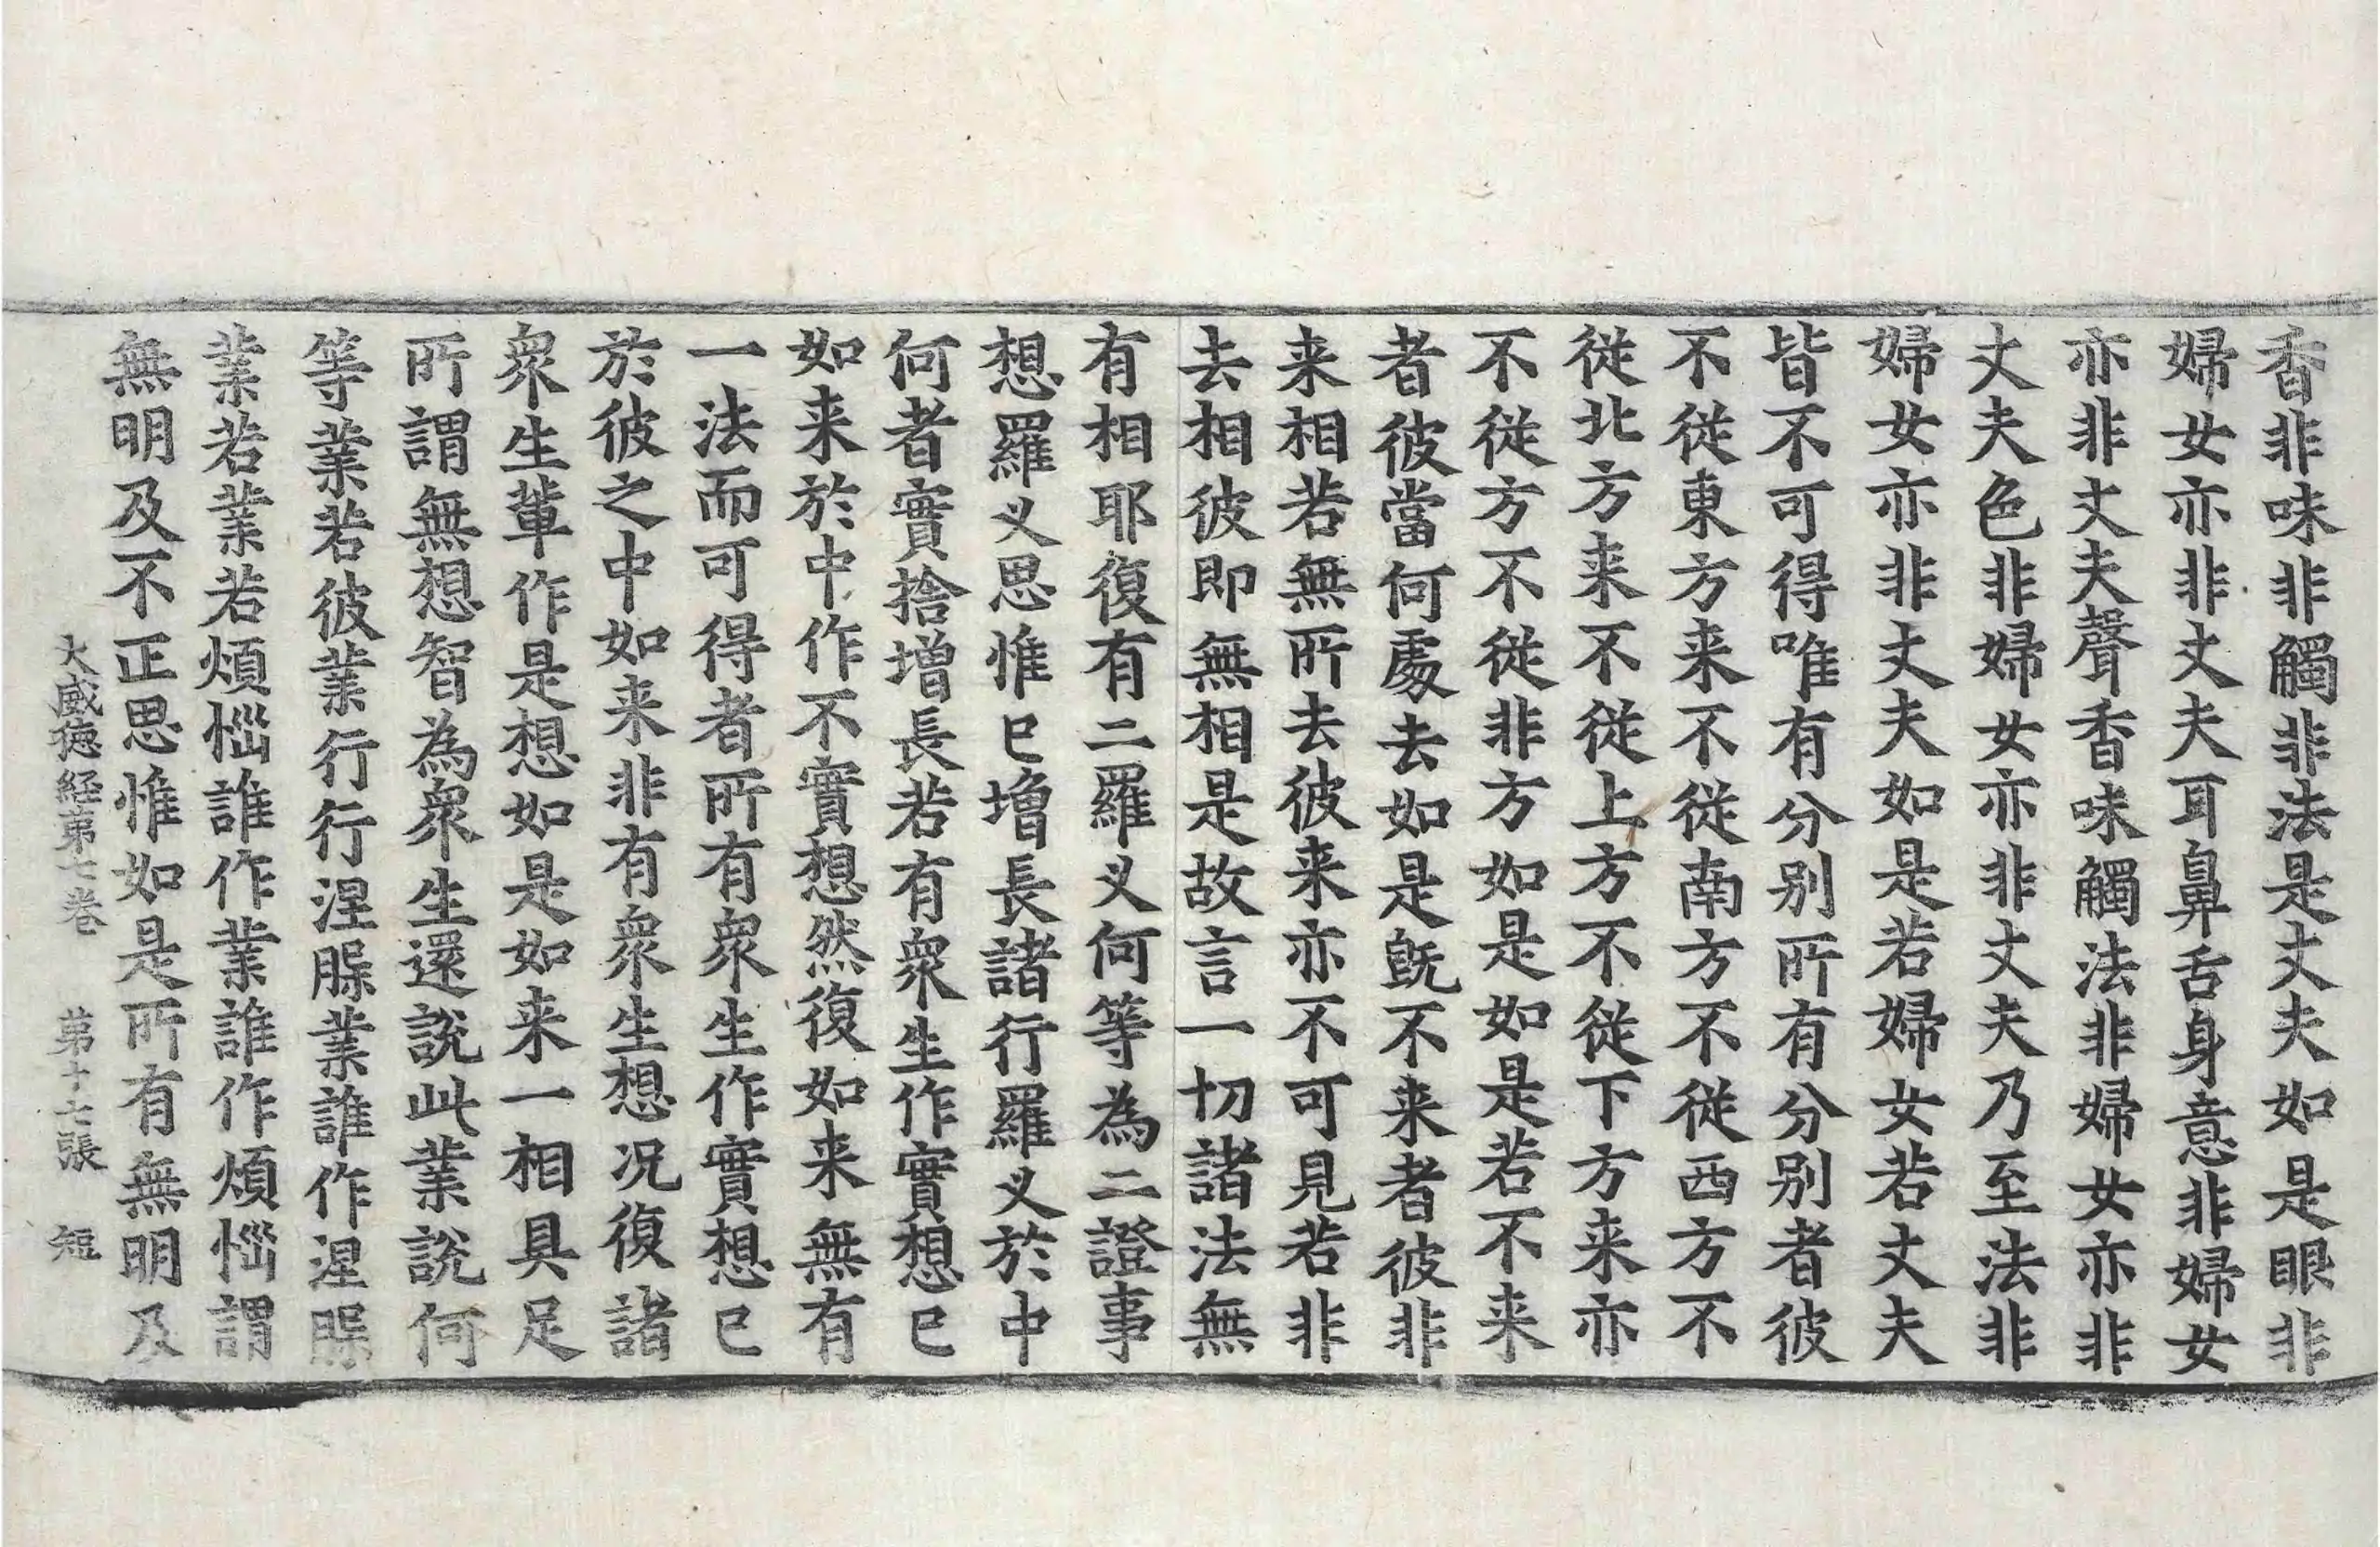 香非味非觸非法是丈夫如是眼非
婦女亦非丈夫耳鼻舌身意非婦女
亦非丈夫聲香味觸法非婦女亦非
丈夫色非婦女亦非丈夫乃至法非
婦女亦非丈夫如是若婦女若丈夫
皆不可得唯有分別所有分別者彼
不從東方来不從南方不從西方不
從北方来不從上方不從下方来亦
不從方不從非方如是如是若不来
者彼當何處去如是旣不来者彼非
来相若無所去彼来亦不可見若非
去相彼即無相是故言一切諸法無
有相耶復有二羅义何等為二證事
想羅义思惟已增長諸行羅义於中
何者實捨增長若有衆生作實想已
如来於中作不實想然復如来無有
一法而可得者所有衆生作實想已
於彼之中如来非有衆生想况復諸
衆生輩作是想如是如来一相具足
所謂無想智為衆生還說此業說何
等業若彼業行行涅脲業誰作涅脲
業若業若煩惱誰作業誰作煩惱謂
無明及不正思惟如是所有無明及
大威徳経第七巻 第十七張 短